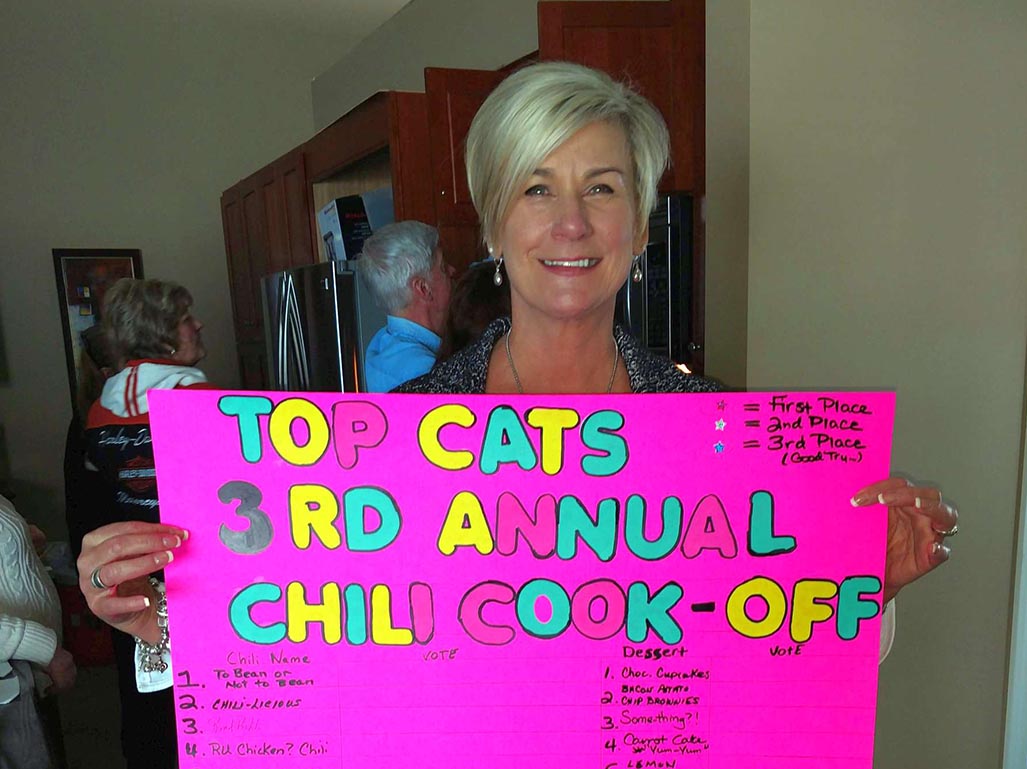 TOP CATS
3RD ANNUAL
CHILI COOK-OFF
= First Place
= 2nd Place
= 3rd Place
(Good Try~)
Chili Name VOTE
1. To Bean or
Not to Bean
2. CHILI-LICIOUS
3.
4. RU Chicken? Chili
Dessert VOTE
1. Choc. Cupcakes
2. BACON POTATO
CHIP BROWNIES
3. Something?!
4 Carrot Cake
"Yum-Yum"
LEMON